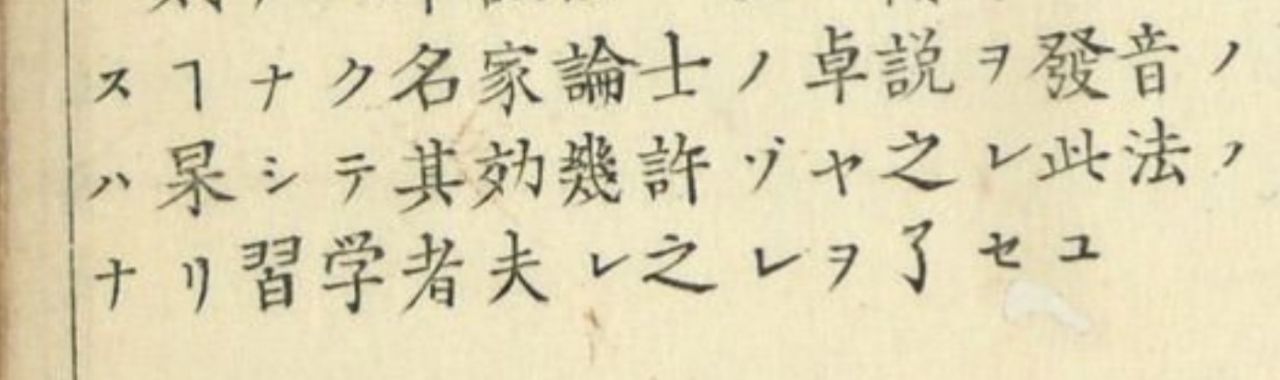 スヿナク名家論士ノ卓説ヲ發音ノ
ハ果シテ其効幾許ゾヤ之レ此法ノ
ナリ習学者夫レ之レヲ了セユ